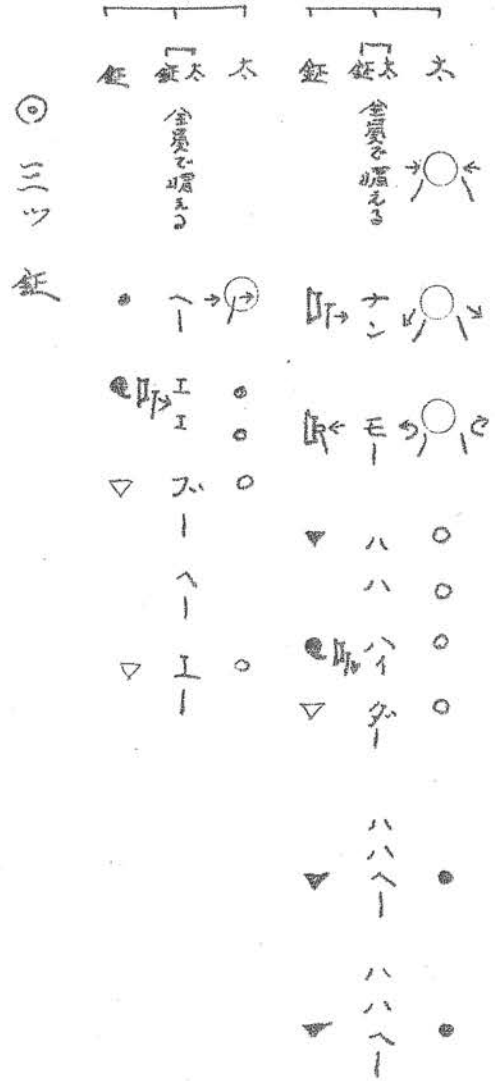 太
太鉦 全員で唱える ナン モー ハ ハ ハイ ダー ハハヘー ハハヘー
鉦
太
太鉦 全員で唱える ヘー エ エ ブー ヘー エー
鉦
◎ 三ツ鉦